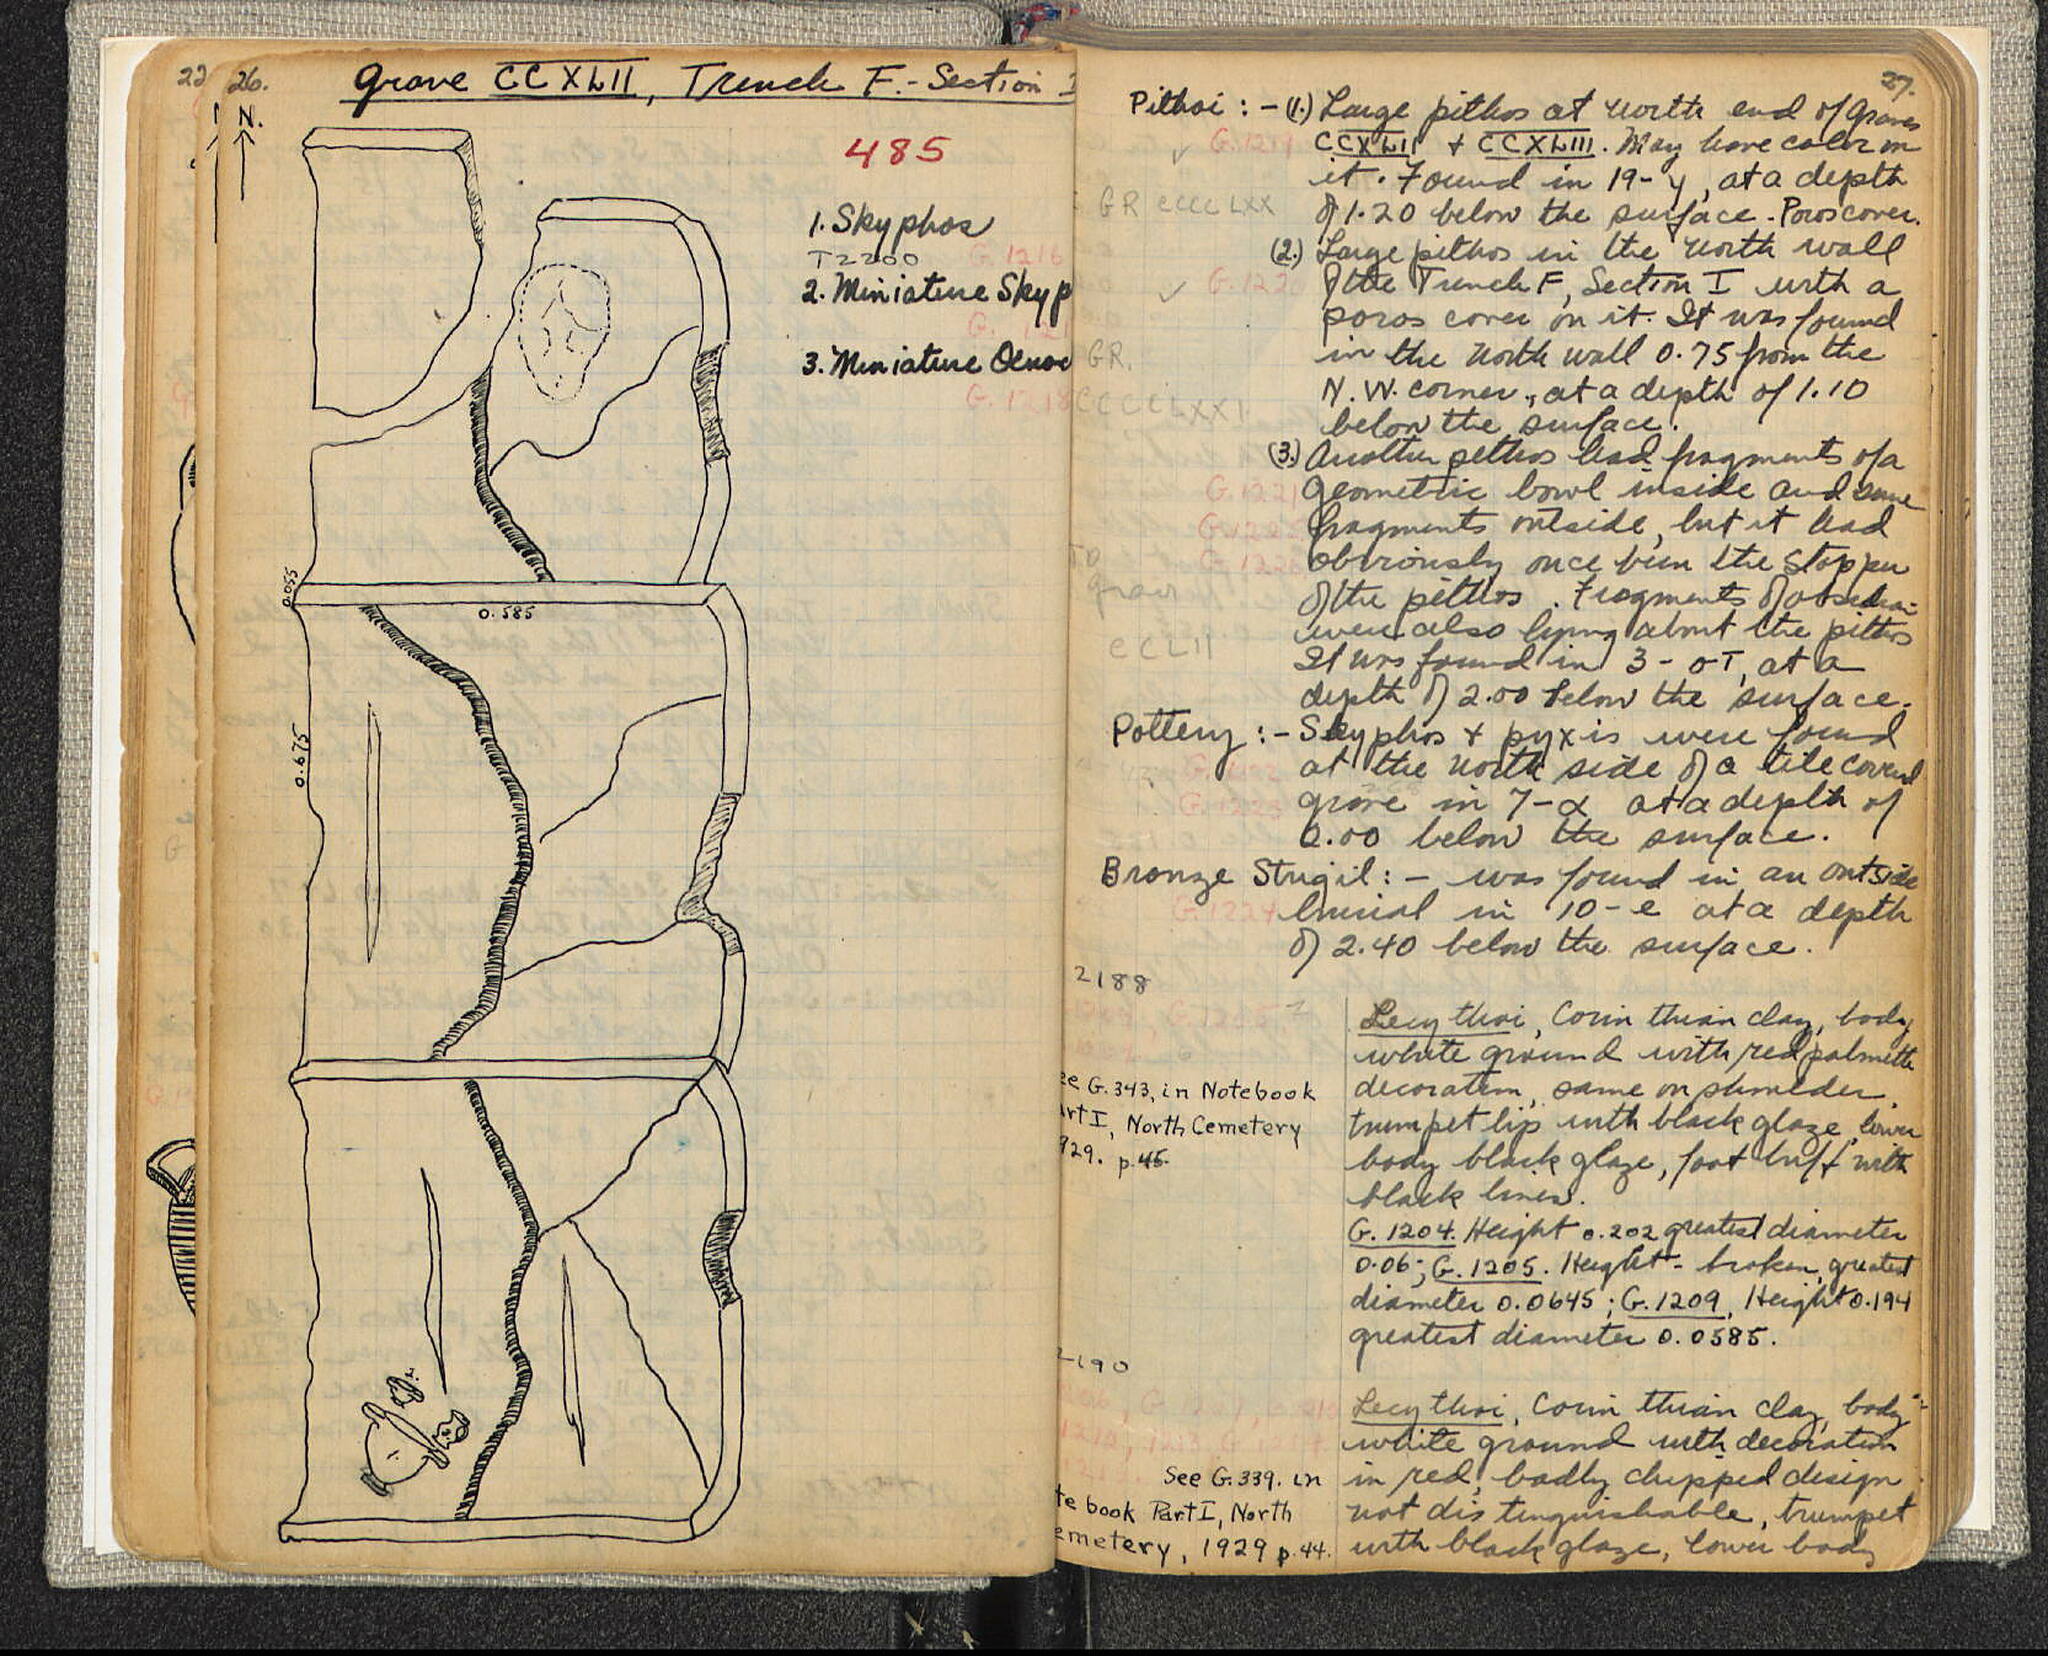 22
26.
Grave CCXLII, Trench F.-Section I
N.
485
1. Skyphos
T2200
G. 1216
2. Miniature Skyp
G. 121
3. Miniature Oenoc
G. 1218
0.055
0.585
0.675
27.
Pithoi : - (1.) Large pithos at north end of Graves
CCXLII + CCXLIII. May have color on
it. Found in 19-y, at a depth
of 1.20 below the surface. Poros cover.
GR CCCCLXX
(2.) Large pithos in the north wall
of the Trench F, Section I with a
poros cover on it. It was found
in the north wall 0.75 from the
N.W. corner, at a depth of 1.10
below the surface.
GR.
CCCCLXXI
(3.) Another pithos had fragments of a
G. 1221
geometric bowl inside and some
fragments outside, but it had
obviously once been the stopper
of the pithos. Fragments of obsidian
were also lying about the pithos
It was found in 3-σT, at a
depth of 2.00 below the surface.
grave
CCLII
Pottery :- Skyphos + pyxis were found
at the north side of a tile covered
grave in 7-α at a depth of
2.00 below the surface.
Bronze Strigil: - was found in an outside
G. 1224
burial in 10-e at a depth
of 2.40 below the surface.
2188
Lecythoi, Corinthian clay, body
white ground with red palmette
decoration, same on shoulder,
trumpet lip with black glaze, lower
body black glaze, foot buff with
black lines.
ee G.343, in Notebook
art I, North Cemetery
929. p.45.
G. 1204. Height 0.202 greatest diameter
0.06; G. 1205. Height - broken, greatest
diameter 0.0645; G. 1209, Height 0.194
greatest diameter 0.0585.
2190
Lecythoi, Corinthian clay, body
white ground with decoration
in red, badly chipped design
not distinguishable, trumpet
with black glaze, lower body
See G.339. in
te book Part I, North
emetery, 1929 p.44.